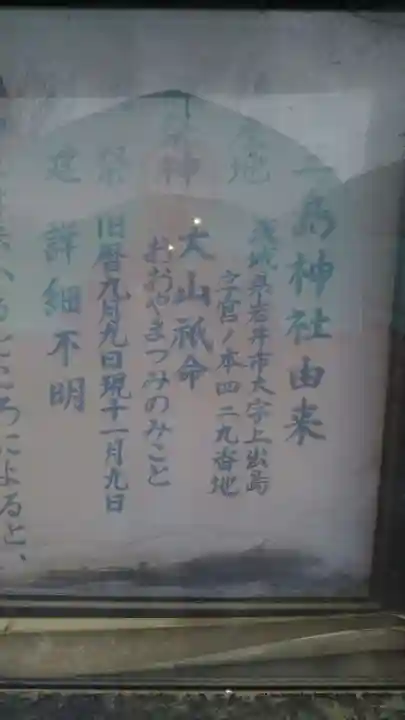 三島神社由来
地 茨城県岩井市大字上出島
字宮ノ本四二九番地
祭神 大山祇命
おおやまつみのみこと
祭 旧暦九月九日現十一月九日
建 詳細不明
るところによると、